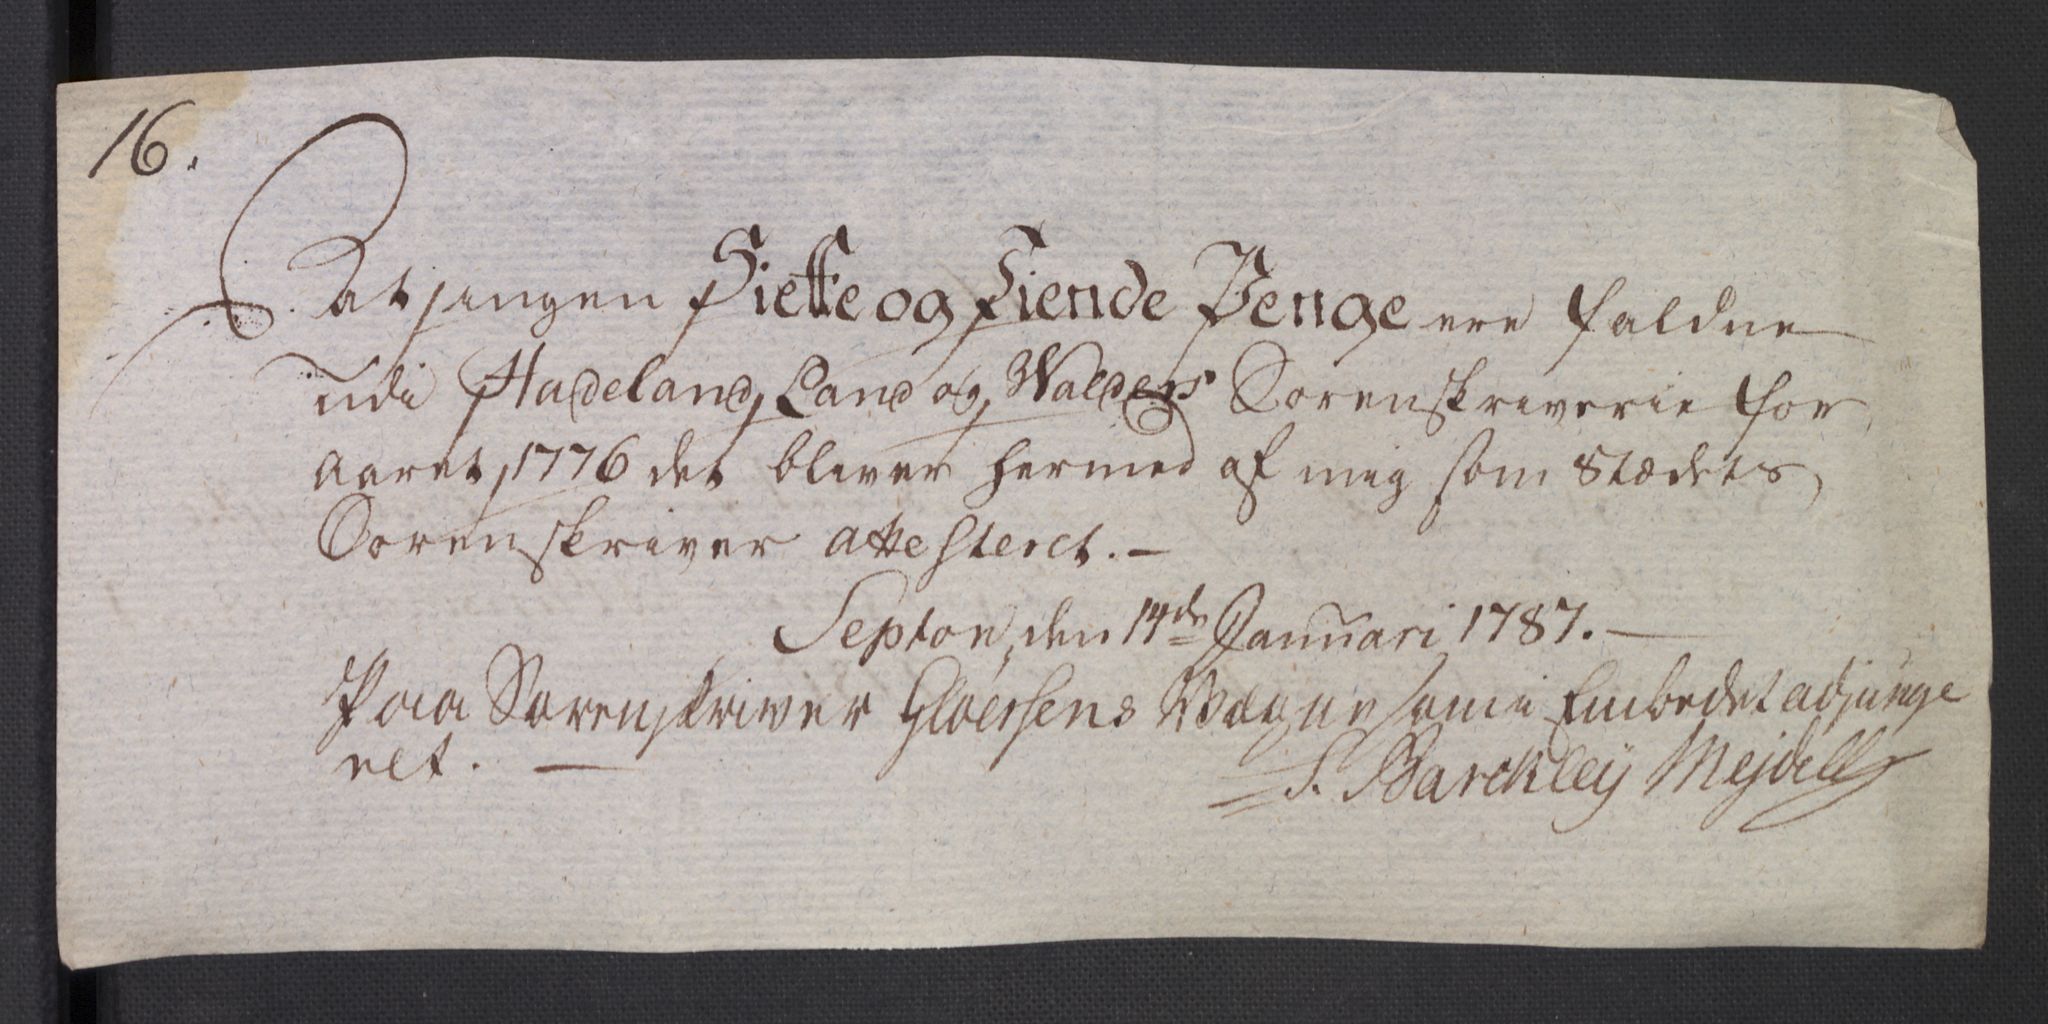 16.
at ingen Siette og Tiende Penge ere faldne
udi Hadeland, Land og Walders Sorenskriverie for
Aaret 1776 det bliver hermed af mig som Stædets
Sorenskriver attesteret. –
Septon, den 14de Januari 1787. –
Paa Sorenskriver Gloersens Vegne som i Embedet adjunge
ret. –
S. Barckleij Mejdell